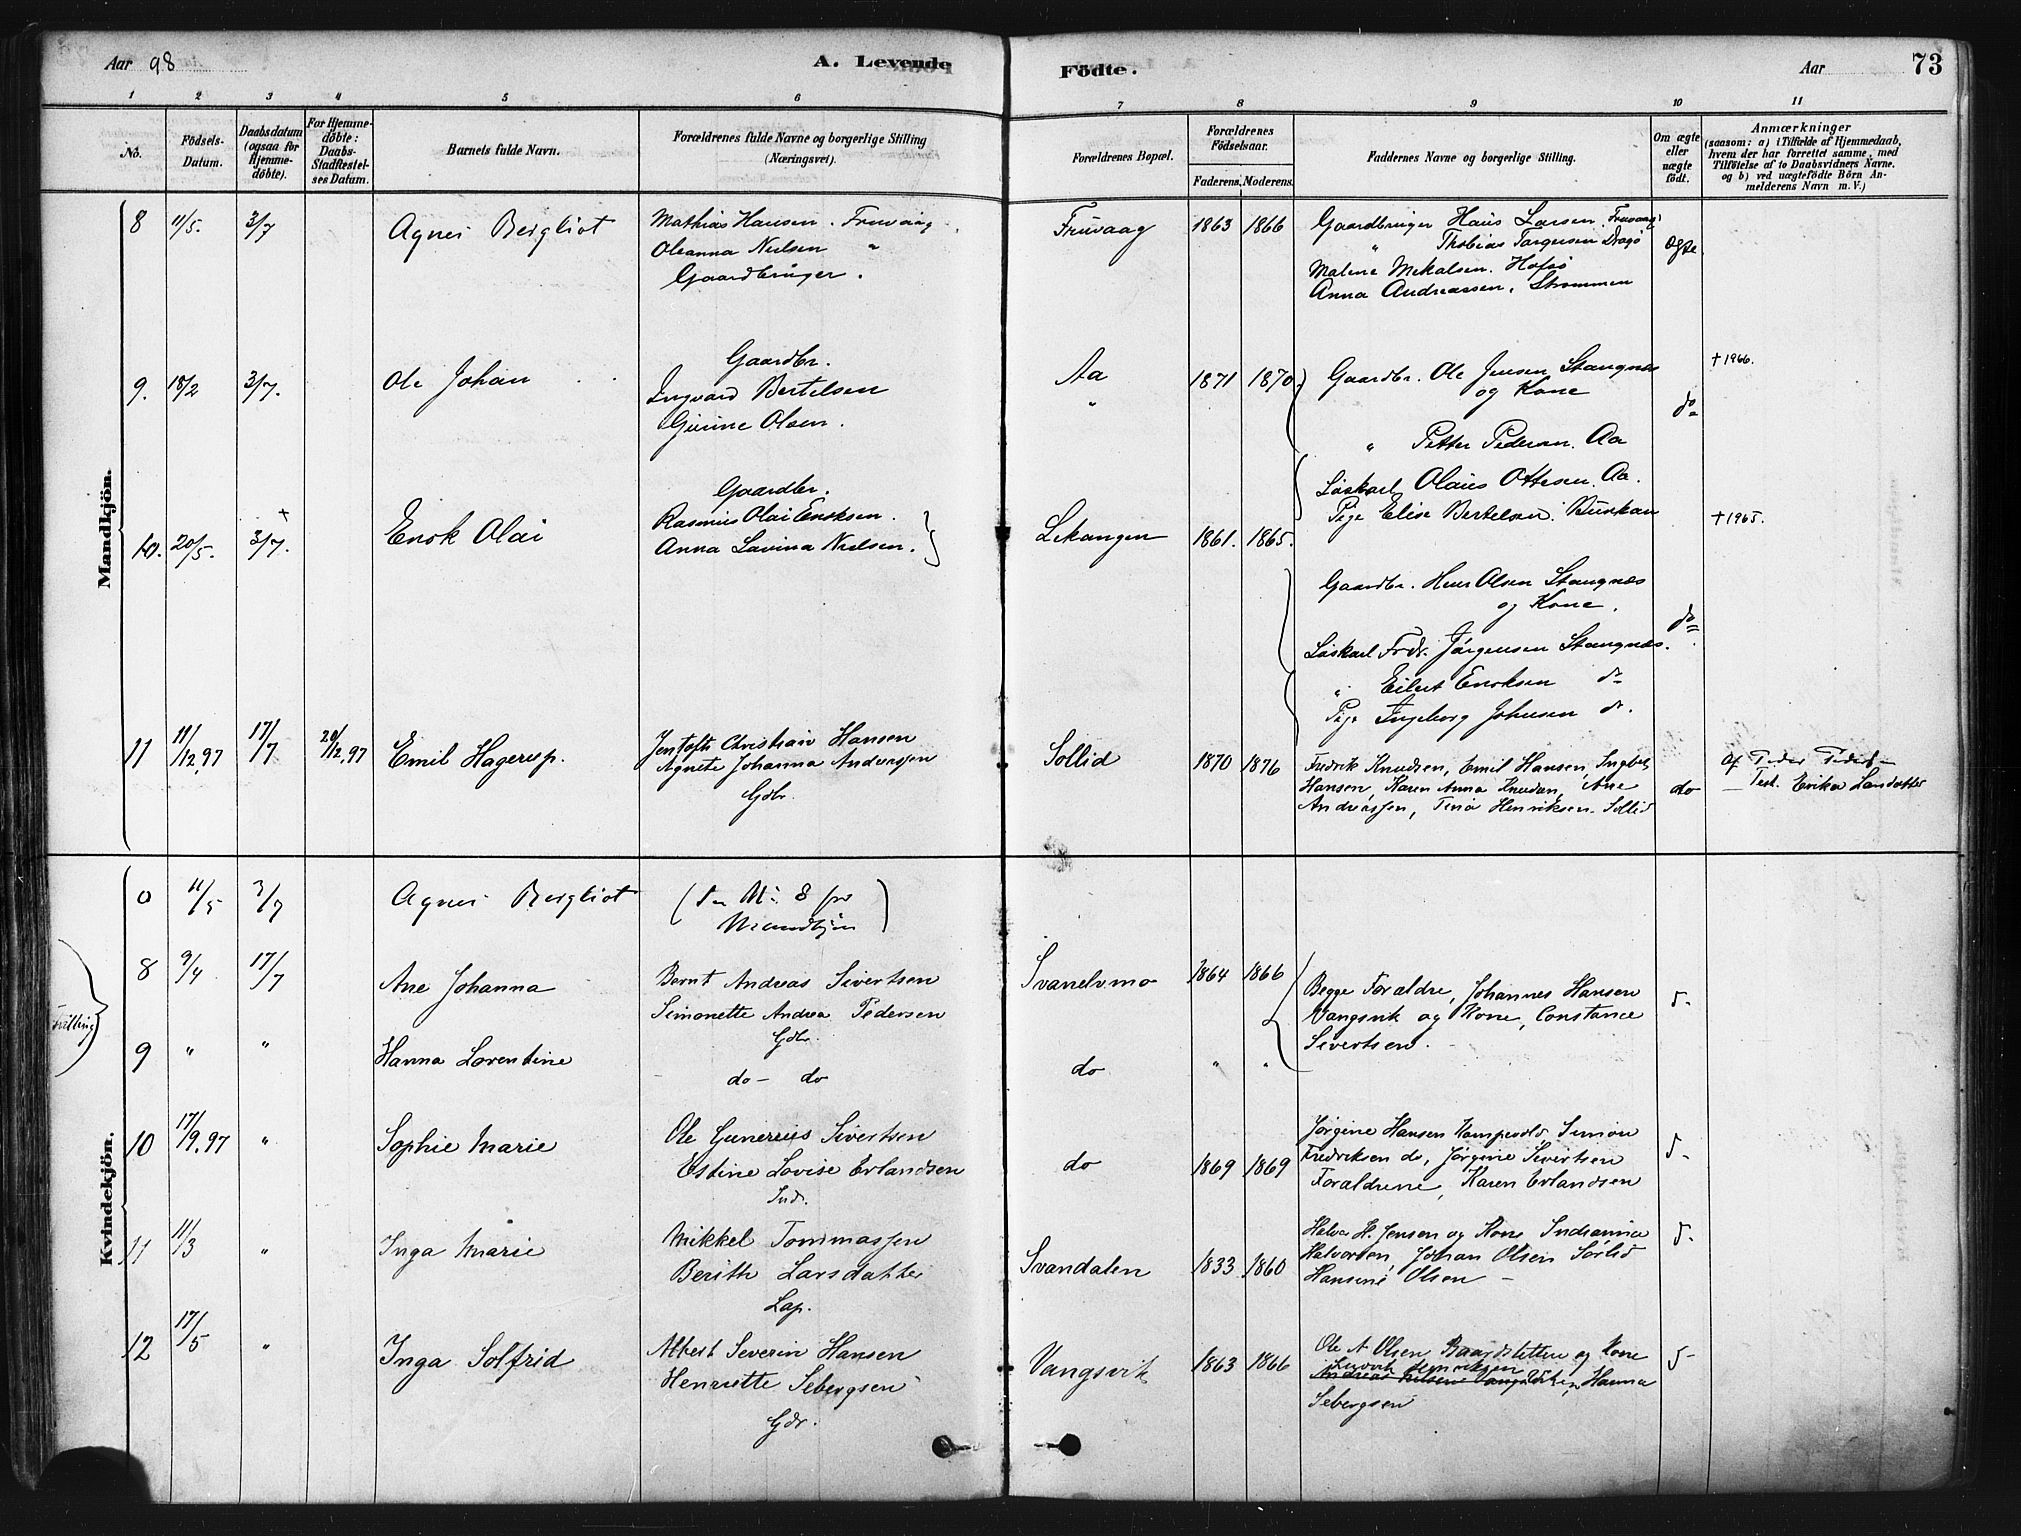 Aar 98
A. Levende
Födte.
Aar
73
1 2 3 4 5 6 7 8 9 10 11
No.
Födsels-Datum.
Daabsdatum (ogsaa for Hjemme-döbte).
For Hjemme-döbte: Daabs-Stadfæstel-ses Datum.
Barnets fulde Navn.
Forældrenes fulde Navne og borgerlige Stilling (Næringsvei).
Forældrenes Bopæl.
Forældrenes Födselsaar.
Faderens. Moderens.
Faddernes Navne og borgerlige Stilling.
Om ægte eller uægte födt.
Anmærkninger
(saasom: a) i Tilfælde af Hjemmedaab, hvem der har forrettet samme, med Tilföielse af to Daabsvidners Navne, og b) ved uægtefödte Börn An-melderens Navn m. V.)
Mandkjön.
8 11/5. 3/7 Agnes Bergliot
Mathias Hansen. Fruvaag
Oleanna Nielsen "
Gaardbruger.
Fruvaag 1863 1866
Gaardbruger Hans Larsen. Fruvaag
" Thobias Torgersen Dragö
Malene Mikalsen. Hofsö
Anna Andreassen, Strømmen
ægte
9. 18/2 3/7. Ole Johan
Gaardbr.
Ingvard Bertelsen
Gurine Olsen.
Aa
"
1871 1870
Gaardbr. Ole Jensen Stangnes
og Kone
" Petter Pedersen. Aa
Løskarl Olaus Ottesen. Aa.
Pige Elise Bertelsen.
do
+ 1966.
10. 20/5. 3/7. + Enok Olai
Gaardbr.
Rasmus Olai Enoksen.
Anna Lavina Nielsen.
Lekangen 1861. 1865.
Gaardbr. Hans Olsen Stangnæs
og Kone.
Løskarl Fredr. Jørgensen Stangnæs.
" Eilert Enoksen do
Pige Ingeborg Johnsen do.
do
+ 1965.
11 11/12.97 17/7 26/12.97 Emil Hagerup.
Jentoft Christian Hansen
Agnete Johanna Anderssen
Gdbr.
Sollid 1870 1876
Fredrik Knudsen, Emil Hansen, Ingeb.
Hansen, Karen Anna Knudsen, Ane
Andreassen, Tina Henriksen. Sollid
do
Af Peder Peders.
Test. Erika Larsdatter
Kvindekjön.
0 11/5 3/7 Agnes Bergliot
(Se No 8 for
Mandkjön)
Tvilling
8 9/4 17/7 Ane Johanna
Bernt Andreas Sivertsen
Simonette Andrea Pedersen
Gdbr.
Svanelvmo 1864 1866
Begge Forældre, Johannes Hansen
Vangsvik og Kone, Constance
Sivertsen.
9 " " Hanna Lorentine
do - do
do " "
10 17/9.97 " Sophie Marie
Ole Gunerius Sivertsen
Estine Lovise Erlandsen
Ind.
do 1869 1869
Jørgine Hansen Kampevold Simon
Fredriksen do, Jørgine Sivertsen
Forældrene, Karen Erlandsen
11 11/3 " Inga Marie
Mikkel Tommassen
Berith Larsdatter
Lap.
Svandalen 1833 1860
Halvor H. Jensen og Kone Indianna
Halvorsen, Johan Olsen Sørlid
Hansine Olsen -
12 17/5 " Inga Solfrid
Albert Severin Hansen
Henriette Sebergsen
Gdr.
Vangsvik 1863 1866
Ole A Olsen Baardsletten og Kone
Ludvik Henriksen
Andreas Nilsen Vangsviken, Hanna
Sebergsen